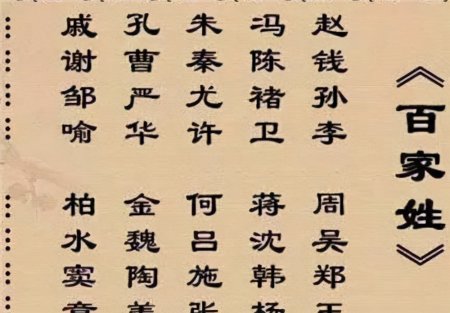 《百家姓》
赵钱孙李 周吴郑王
冯陈褚卫 蒋沈韩杨
朱秦尤许 何吕施张
孔曹严华 金魏陶姜
戚谢邹喻 柏水窦章
…… ……